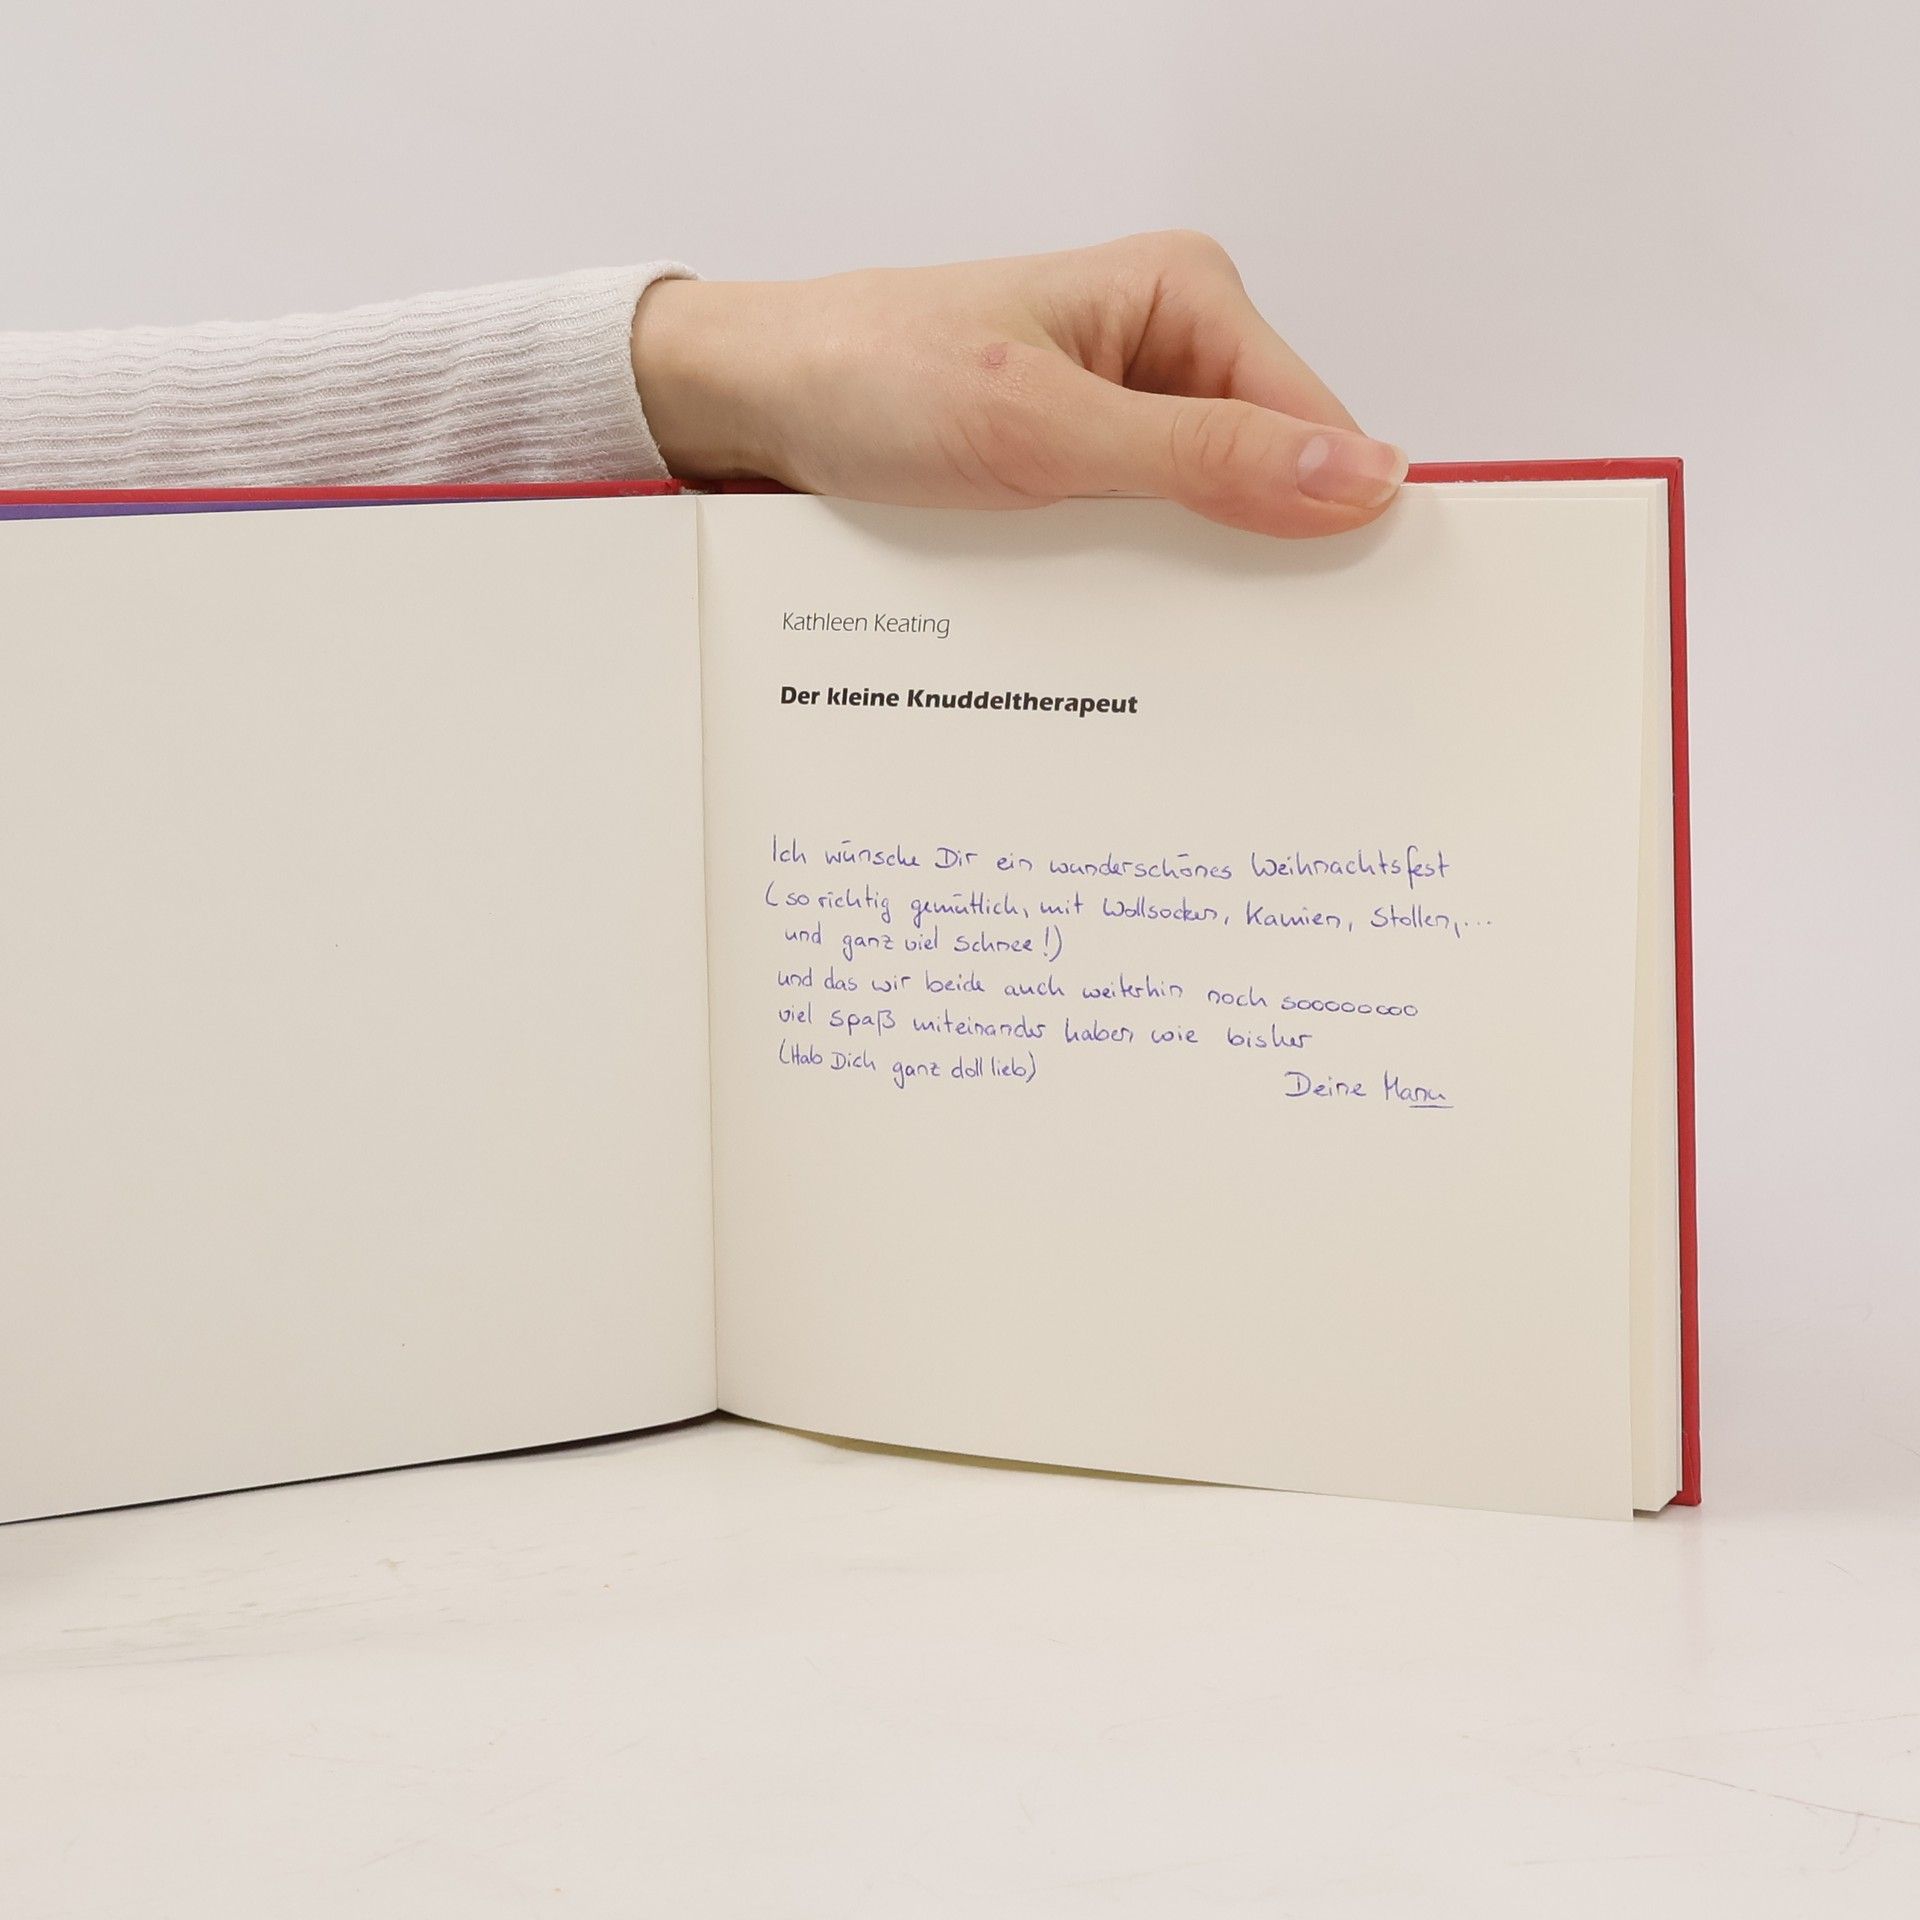 Kathleen Keating
Der kleine Knuddeltherapeut
Ich wünsche Dir ein wunderschönes Weihnachtsfest
(so richtig gemütlich, mit Wollsocken, Kamien, Stollen,...
und ganz viel Schnee!)
und das wir beide auch weiterhin noch sooooooooo
viel Spaß miteinander haben wie bisher
(Hab Dich ganz doll lieb)
Deine Manu